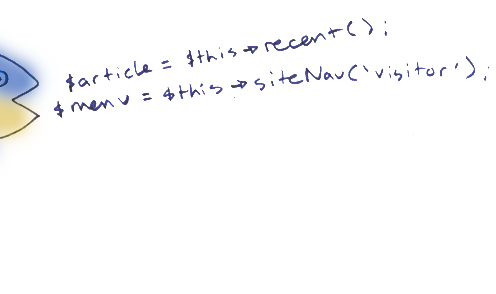 $article = $this→recent();
$menu = $this→siteNav('visitor');